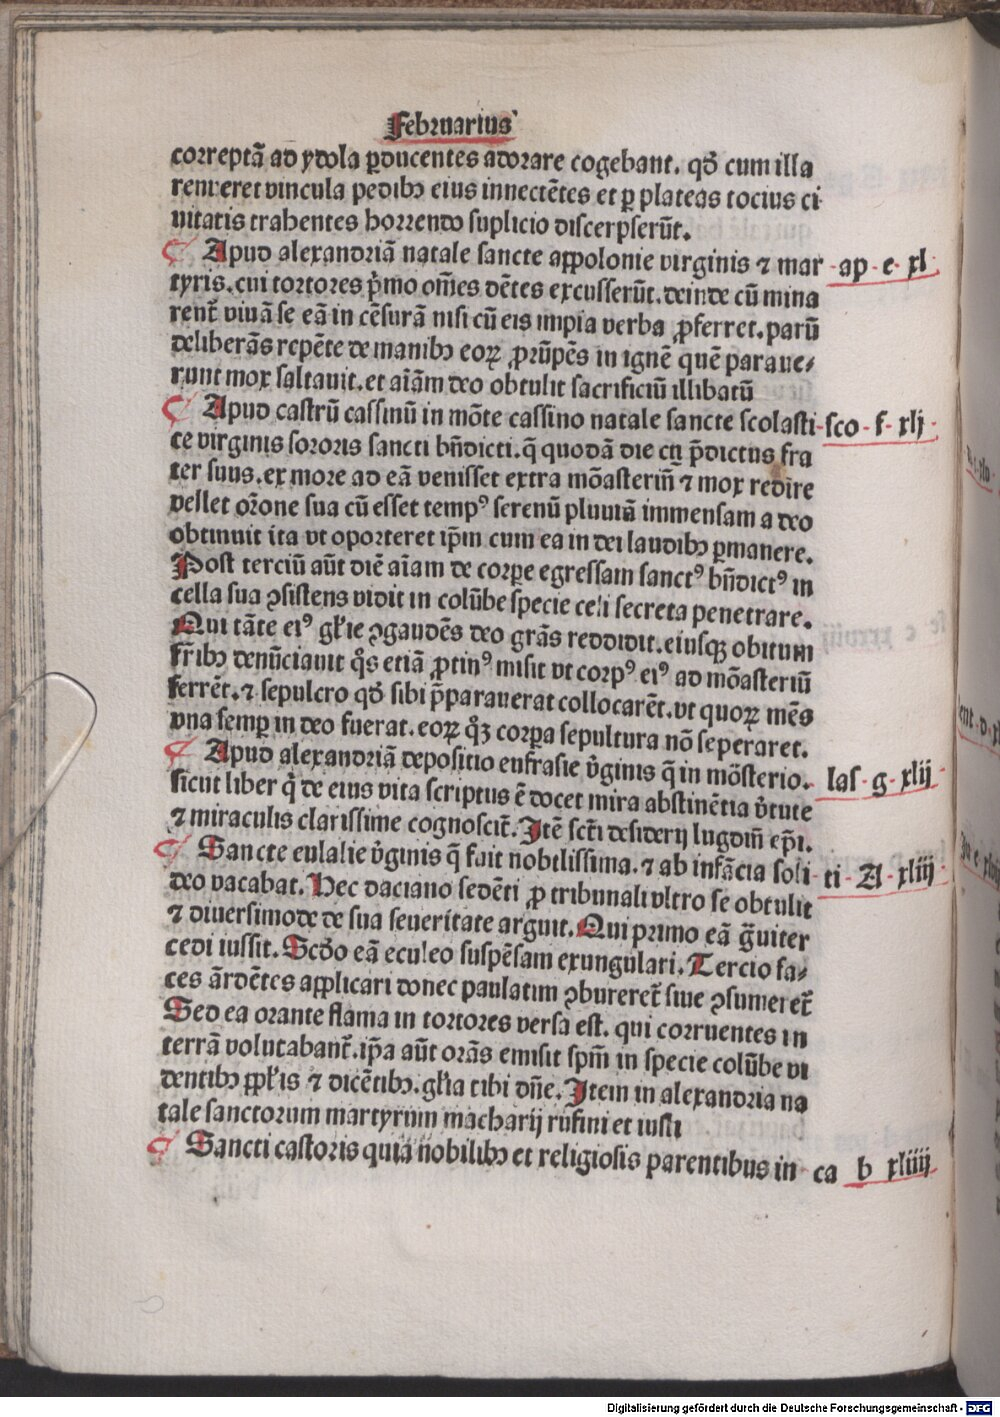 Februarius
correptā ad ydola ꝑducentes adorare cogebant. qđ cum illa
renueret vincula pedibꝫ eius innectētes et ꝑ plateas tocius ci
uitatis trahentes horrendo suplicio discerpserūt.
¶ Apud alexandriā natale sancte appolonie virginis ⁊ mar - ap - e - xl
tyris. cui tortores p̄mo om̄es dētes excusserūt. deinde cū mina
rent̄ viuā se eā in cēsurā nisi cū eis impia verba ꝓferret. parū
deliberās repēte de manibꝫ eoꝝ ꝓrūpēs in ignē quē paraue⸗
runt mox saltauit. et aīam deo obtulit sacrificiū illibatū
¶ Apud castrū cassinū in mōte cassino natale sancte scolasti - sco - f - xlj -
ce virginis sororis sancti bn̄dicti. q̄ quodā die cū p̄dictus fra
ter suus. ex more ad eā venisset extra mōasteriū ⁊ mox redire
vellet or̄one sua cū esset tempꝰ serenū pluuiā immensam a deo
obtinuit ita vt oporteret ip̄m cum ea in dei laudibꝫ ꝑmanere.
Post terciū aūt diē aīam de corpe egressam sanctꝰ bn̄dictꝰ in
cella sua ꝯsistens vidit in colūbe specie celi secreta penetrare.
Qui tāte eiꝰ gl̄ie ꝯgaudēs deo grās reddidit. eiusqꝫ obitum
fr̄ibꝫ denūciauit q̊s etiā ꝓtinꝰ misit vt corpꝰ eiꝰ ad mōasteriū
ferrēt. ⁊ sepulcro qđ sibi p̄parauerat collocarēt. vt quoꝝ mēs
vna semꝑ in deo fuerat. eoꝝ q̊ꝫ corpa sepultura nō seperaret.
¶ Apud alexandriā depositio eufrasie v̄ginis q̄ in mōsterio. - las - g - xlij -
sicut liber q̄ de eius vita scriptus ē docet mira abstinētia v̄tute
⁊ miraculis clarissime cognoscit̄. Itē sc̄ti desiderij lugdun̄ ep̄i.
¶ Sancte eulalie v̄ginis q̄ fuit nobilissima. ⁊ ab infācia soli - ti - A - xliij -
deo vacabat. Hec daciano sedēti ꝓ tribunali vltro se obtulit
⁊ diuersimode de sua seueritate arguit. Qui primo eā g̃uiter
cedi iussit. Scđo eā eculeo suspēsam exungulari. Tercio fa⸗
ces ārdētes applicari donec paulatim ꝯbureret̄ siue ꝯsumeret̄
Sed ea orante flama in tortores versa est. qui corruentes in
terrā volutabant̄. ip̄a aūt orās emisit sp̄m in specie colūbe vi
dentibꝫ ppl̄is ⁊ dicētibꝫ. gl̄ia tibi dn̄e. Item in alexandria na
tale sanctorum martyrum macharij rufini et iusti
¶ Sancti castoris quiā nobilibꝫ et religiosis parentibus in - ca b xliiij -
Digitalisierung gefördert durch die Deutsche Forschungsgemeinschaft - DFG